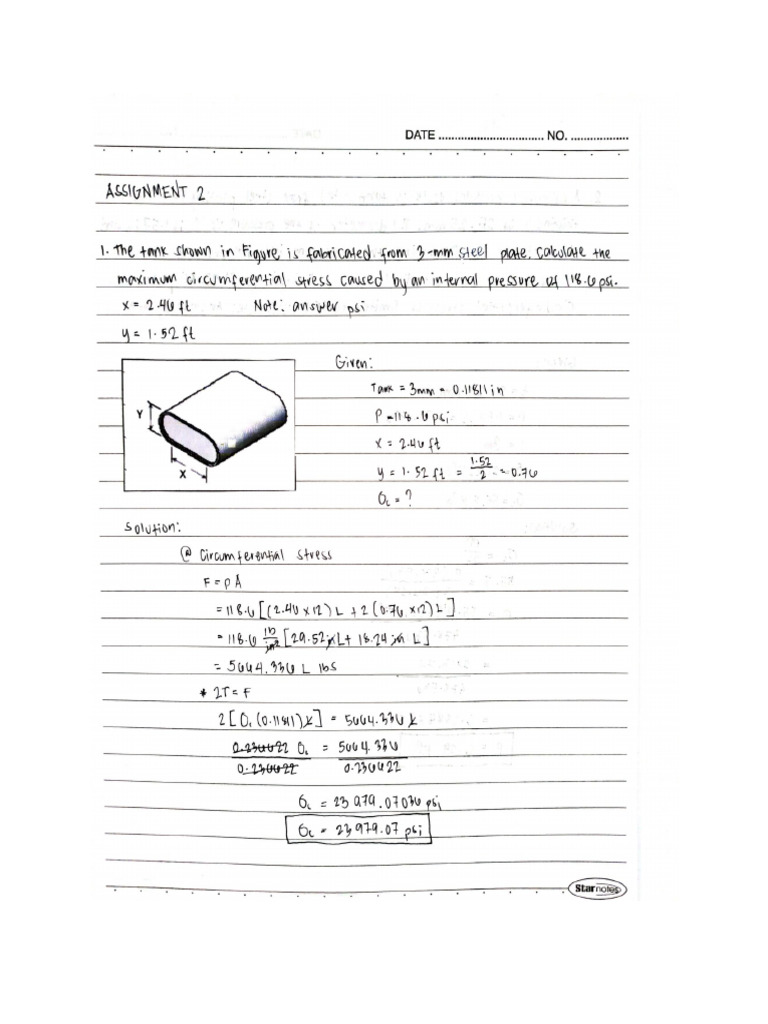 DATE .............................. NO. ..................
ASSIGNMENT 2
1. The tank shown in Figure is fabricated from 3-mm steel plate. Calculate the
maximum circumferential stress caused by an internal pressure of 118.6 psi.
x = 2.46 ft Note: answer psi
y = 1.52 ft
Given:
Tank = 3mm = 0.11811 in
P = 118.6 psi
x = 2.46 ft
y = 1.52 ft = 1.52/2 = 0.76
σc = ?
Y
X
Solution:
@ Circumferential stress
F = pA
= 118.6 [(2.46 x12) L + 2 (0.76 x12) L]
= 118.6 lb/in² [29.52 in L + 18.24 in L]
= 5664.336 L lbs
* 2T = F
2 [σc (0.11811) L] = 5664.336 L
0.236622 σc = 5664.336
0.236622 0.236622
σc = 23979.07036 psi
σc = 23979.07 psi
Starnotes